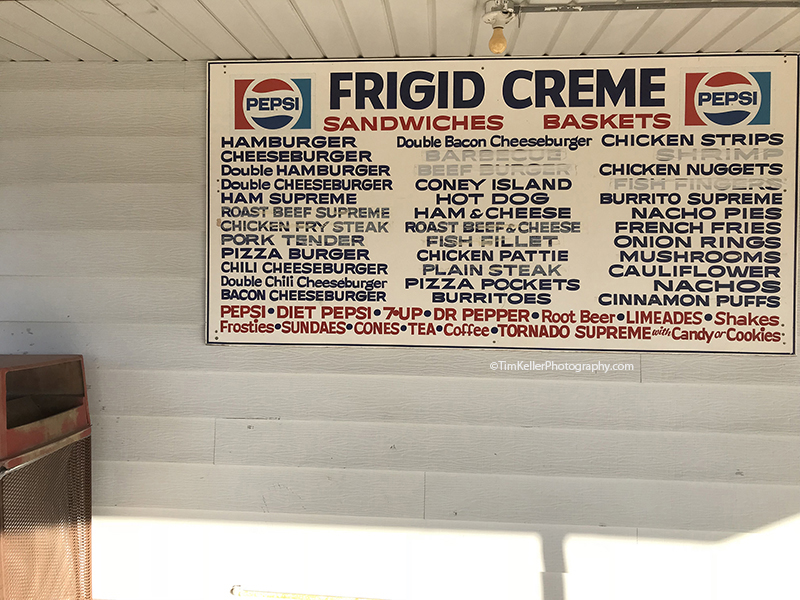 PEPSI FRIGID CREME PEPSI
SANDWICHES BASKETS
HAMBURGER
CHEESEBURGER
Double HAMBURGER
Double CHEESEBURGER
HAM SUPREME
ROAST BEEF SUPREME
CHICKEN FRY STEAK
PORK TENDER
PIZZA BURGER
CHILI CHEESEBURGER
Double Chili Cheeseburger
BACON CHEESEBURGER
Double Bacon Cheeseburger
BARBECUE
BEEF BURGER
CONEY ISLAND
HOT DOG
HAM & CHEESE
ROAST BEEF & CHEESE
FISH FILLET
CHICKEN PATTIE
PLAIN STEAK
PIZZA POCKETS
BURRITOS
CHICKEN STRIPS
SHRIMP
CHICKEN NUGGETS
FISH FINGERS
BURRITO SUPREME
NACHO PIES
FRENCH FRIES
ONION RINGS
MUSHROOMS
CAULIFLOWER
NACHOS
CINNAMON PUFFS
PEPSI • DIET PEPSI • 7-UP • DR PEPPER • Root Beer • LIMEADES • Shakes
Frosties • SUNDAES • CONES • TEA • Coffee • TORNADO SUPREME with Candy or Cookies
©TimKellerPhotography.com